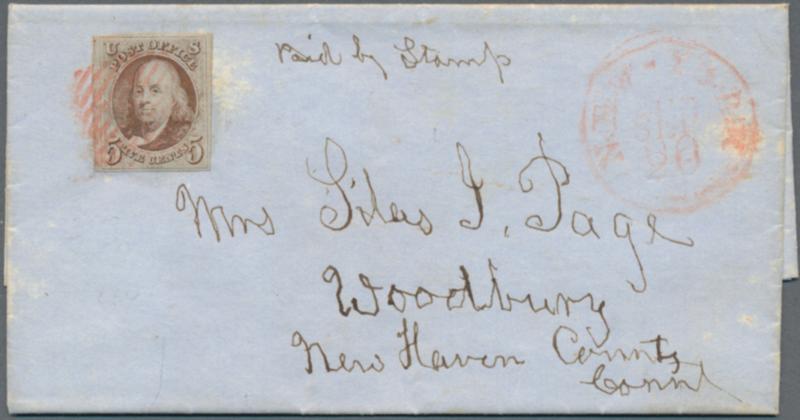 U S
POST OFFICE
FIVE CENTS
5 5
Paid by Stamp
NEW-YORK
SEP
20
Mrs Silas J. Page
Woodbury
New Haven County
Conn